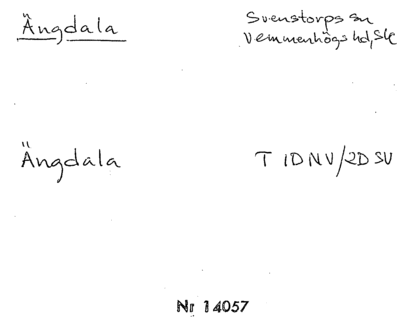 Ängdala
Svenstorps sn
Vemmenhögs hd, Sk
Ängdala
T 1D NV/2D SV
Nr 14057